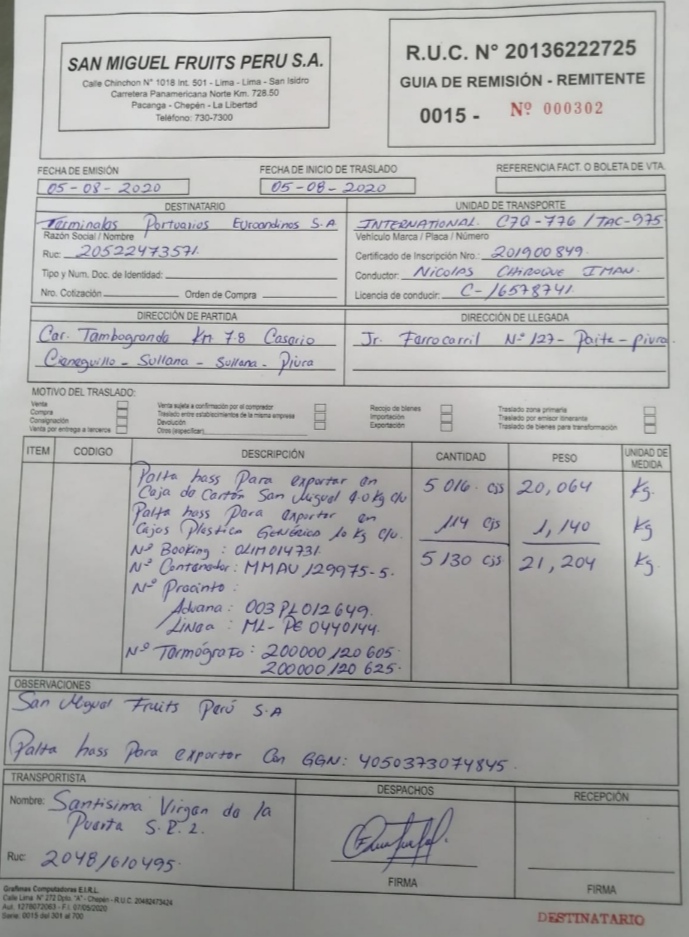 SAN MIGUEL FRUITS PERU S.A.
Calle Chinchon N° 1018 Int. 501 - Lima - Lima - San Isidro
Carretera Panamericana Norte Km. 728.50
Pacanga - Chepén - La Libertad
Teléfono: 730-7300
R.U.C. N° 20136222725
GUIA DE REMISIÓN - REMITENTE
0015 - Nº 000302
FECHA DE EMISIÓN
05-08-2020
FECHA DE INICIO DE TRASLADO
05-08-2020
REFERENCIA FACT. O BOLETA DE VTA.
DESTINATARIO
Terminales Portuarios Euroandinos S.A
Razón Social / Nombre
Ruc 20522473571.
Tipo y Num. Doc. de Identidad:
Nro. Cotización Orden de Compra
UNIDAD DE TRANSPORTE
INTERNATIONAL C7Q-776 / TAC-975
Vehículo Marca / Placa / Número
Certificado de Inscripción Nro.: 201900849.
Conductor: Nicolas CHIROQUE IMAN.
Licencia de conducir: C-16578741.
DIRECCIÓN DE PARTIDA
Car. Tambogrande Km 7.8 Caserio
Cieneguillo - Sullana - Sullana - Piura
DIRECCIÓN DE LLEGADA
Jr. Ferrocarril Nº 127 - Paita - piura.
MOTIVO DEL TRASLADO:
Venta
Compra
Consignación
Venta por entrega a terceros
Venta sujeta a confirmación por el comprador
Traslado entre establecimientos de la misma empresa
Devolución
Otros (especificar)
Recojo de bienes
Importación
Exportación
Traslado zona primaria
Traslado por emisor itinerante
Traslado de bienes para transformación
ITEM CODIGO DESCRIPCIÓN CANTIDAD PESO UNIDAD DE MEDIDA
Palta hass Para exportar en
Caja de Cartón San Miguel 4.0 Kg c/u 5 016 cjs 20,064 Kg.
Palta hass Para exportar en
Cajas Plastica Genérico 10 Kg c/u. 114 cjs 1,140 Kg
Nº Booking: OLIM014731. 5 130 cjs 21,204 Kg.
Nº Contenedor: MMAU 129975-5.
Nº Precinto:
Aduana: 003 PL012649.
Linea: ML-PE 0440144.
Nº Termógrafo: 200000120 605.
200000120 625.
OBSERVACIONES
San Miguel Fruits Perú S.A
Palta hass Para exportar Con GGN: 4050373074845.
TRANSPORTISTA
Nombre: Santisima Virgen de la
Puerta S.R.L.
Ruc: 20481610495.
DESPACHOS
FIRMA
RECEPCIÓN
FIRMA
Grafimas Computadoras E.I.R.L.
Calle Lima N° 272 Dpto. "A" - Chepén - R.U.C. 20482473424
Aut. 1276072063 - F.I. 07/05/2020
Serie: 0015 del 301 al 700
DESTINATARIO